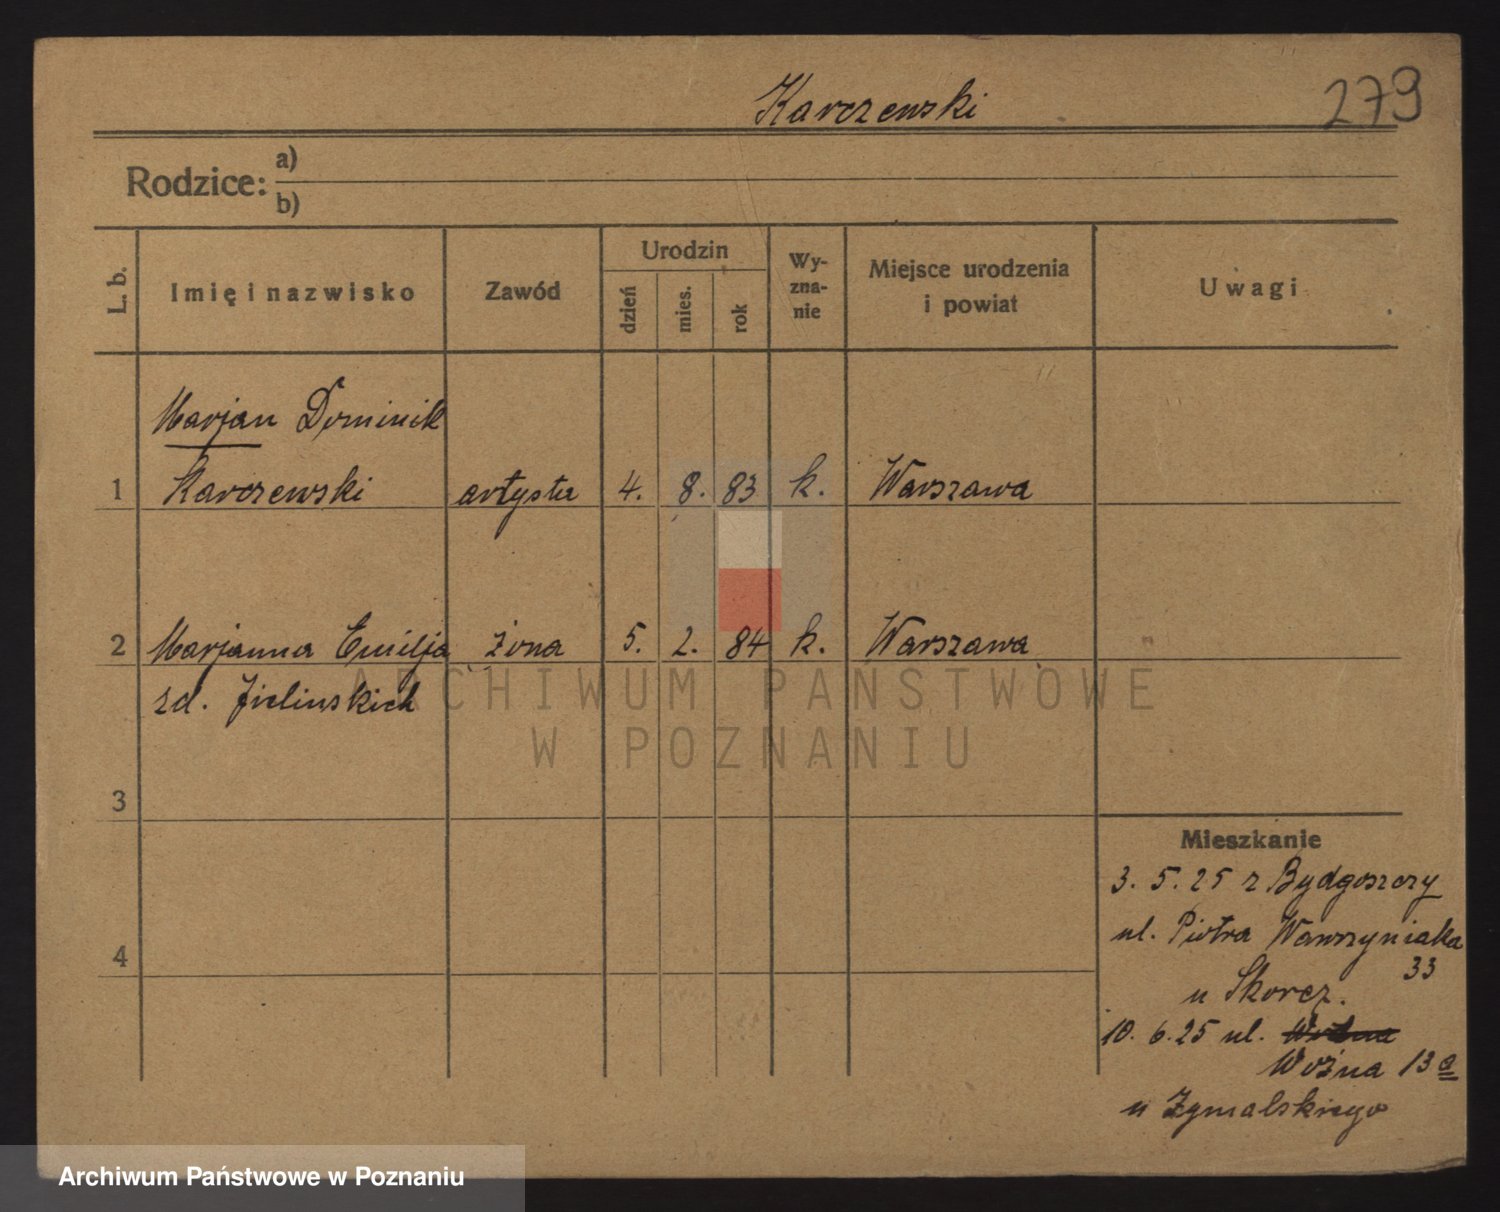 Karczewski
279
Rodzice: a)
b)
L. b.
Imię i nazwisko
Zawód
Urodzin
dzień
mies.
rok
Wy-
zna-
nie
Miejsce urodzenia
i powiat
Uwagi
Marjan Dominik
1 Karczewski artysta 4. 8. 83 k. Warszawa
2 Marjanna Emilja żona 5. 2. 84 k. Warszawa
zd. Zielinskich
ARCHIWUM PAŃSTWOWE
W POZNANIU
3
4
Mieszkanie
3. 5. 25 z Bydgoszczy
ul. Piotra Wawrzyniaka
33
u Skorcz.
10. 6. 25 ul.
Woźna 13 a
u Zymalskiego
Archiwum Państwowe w Poznaniu